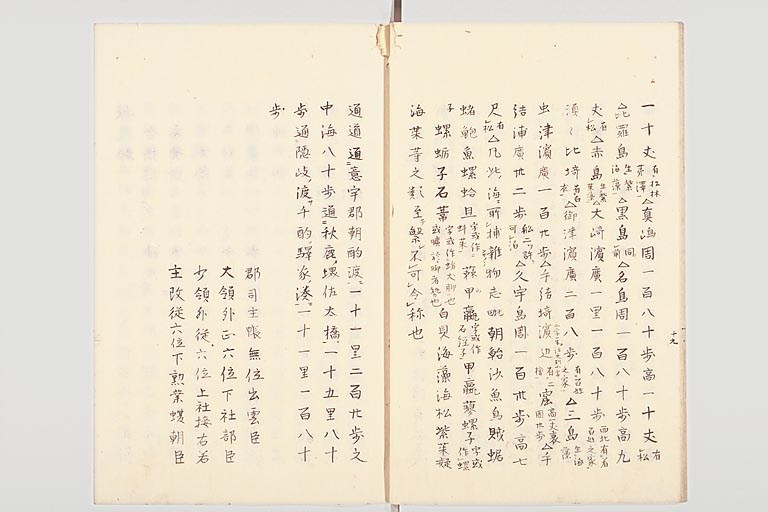 一十丈有松林茅澤△真嶋周一百八十歩高一十丈有松
△比羅島生紫海藻△黒島同前△名島周一百八十歩高九
丈有松△赤島生紫海藻△大﨑濱廣一里一百八十歩西北有百姓之家
須々比埼有白朮△御津濱廣二百八歩有百姓之家△三島生海藻
虫津濱廣一百廿歩△手結埼濱辺有窟高一丈裏周卅歩△手
結浦廣卌二歩船二許可泊△久宇島周一百卅歩高七
尺有松△凡此海所捕雜物志毗朝鮐沙魚烏賊蜛
蝫鮑魚螺蛤貝字或作蚌菜蕀甲蠃字或作石経子甲蠃蓼螺子字或作螺
子螺蛎子石䕷字或作蛎犬脚也或曠於脚者勢也白貝海藻海松紫菜凝
海菜等之類至繁不可令称也
十九
通道通意宇郡朝酌渡一十一里二百廿歩之
中海八十歩通秋鹿堺佐太橋一十五里八十
歩通隠岐渡千酌驛家湊一十一里一百八十
歩
郡司主帳無位出雲臣
大領外正六位下社部臣
少領外従六位上社接石君
主政従六位下勲業蝮朝臣